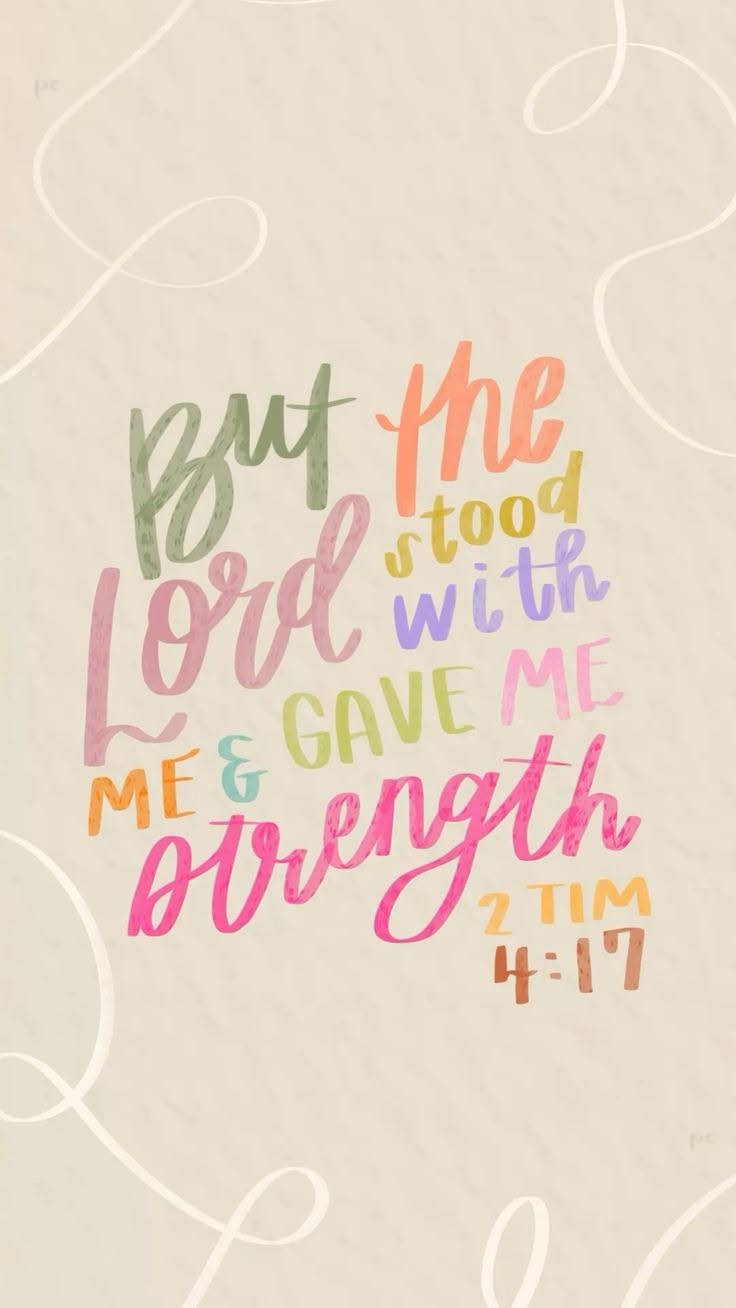 pc
But the
Lord stood
with
ME & GAVE ME
strength
2 TIM
4:17
pc